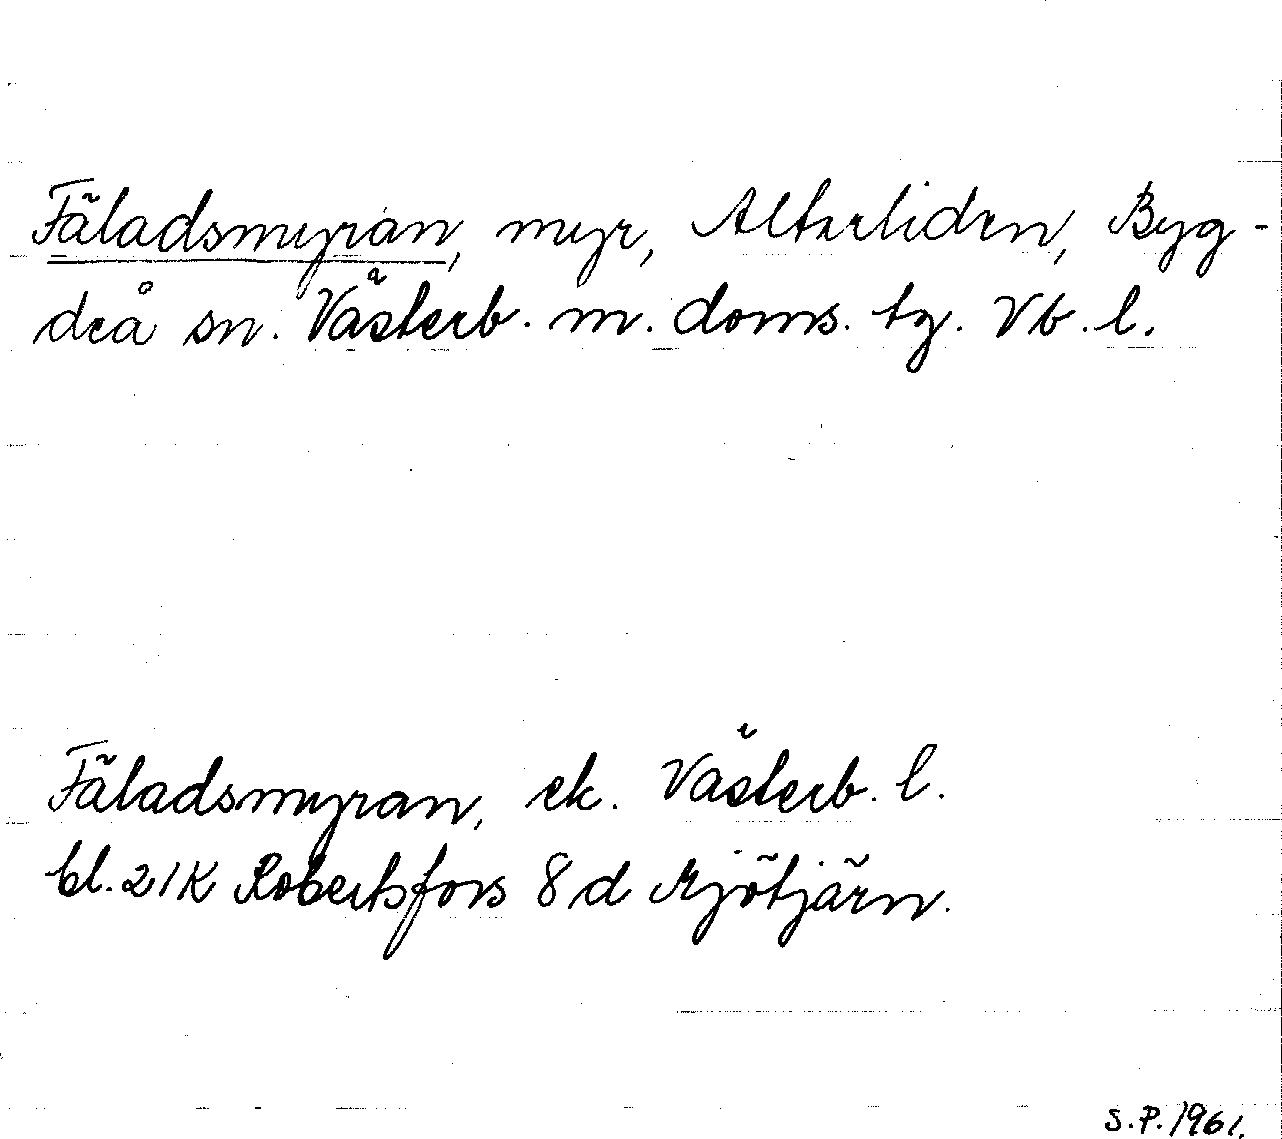 Fäladsmyran, myr, Altarliden, Byg-
deå sn. Västerb. m. doms. tg. Vb. l.
Fäladsmyran, ek. Västerb. l.
bl. 21K Robertsfors 8 d Mjötjärn.
S.P. 1961.